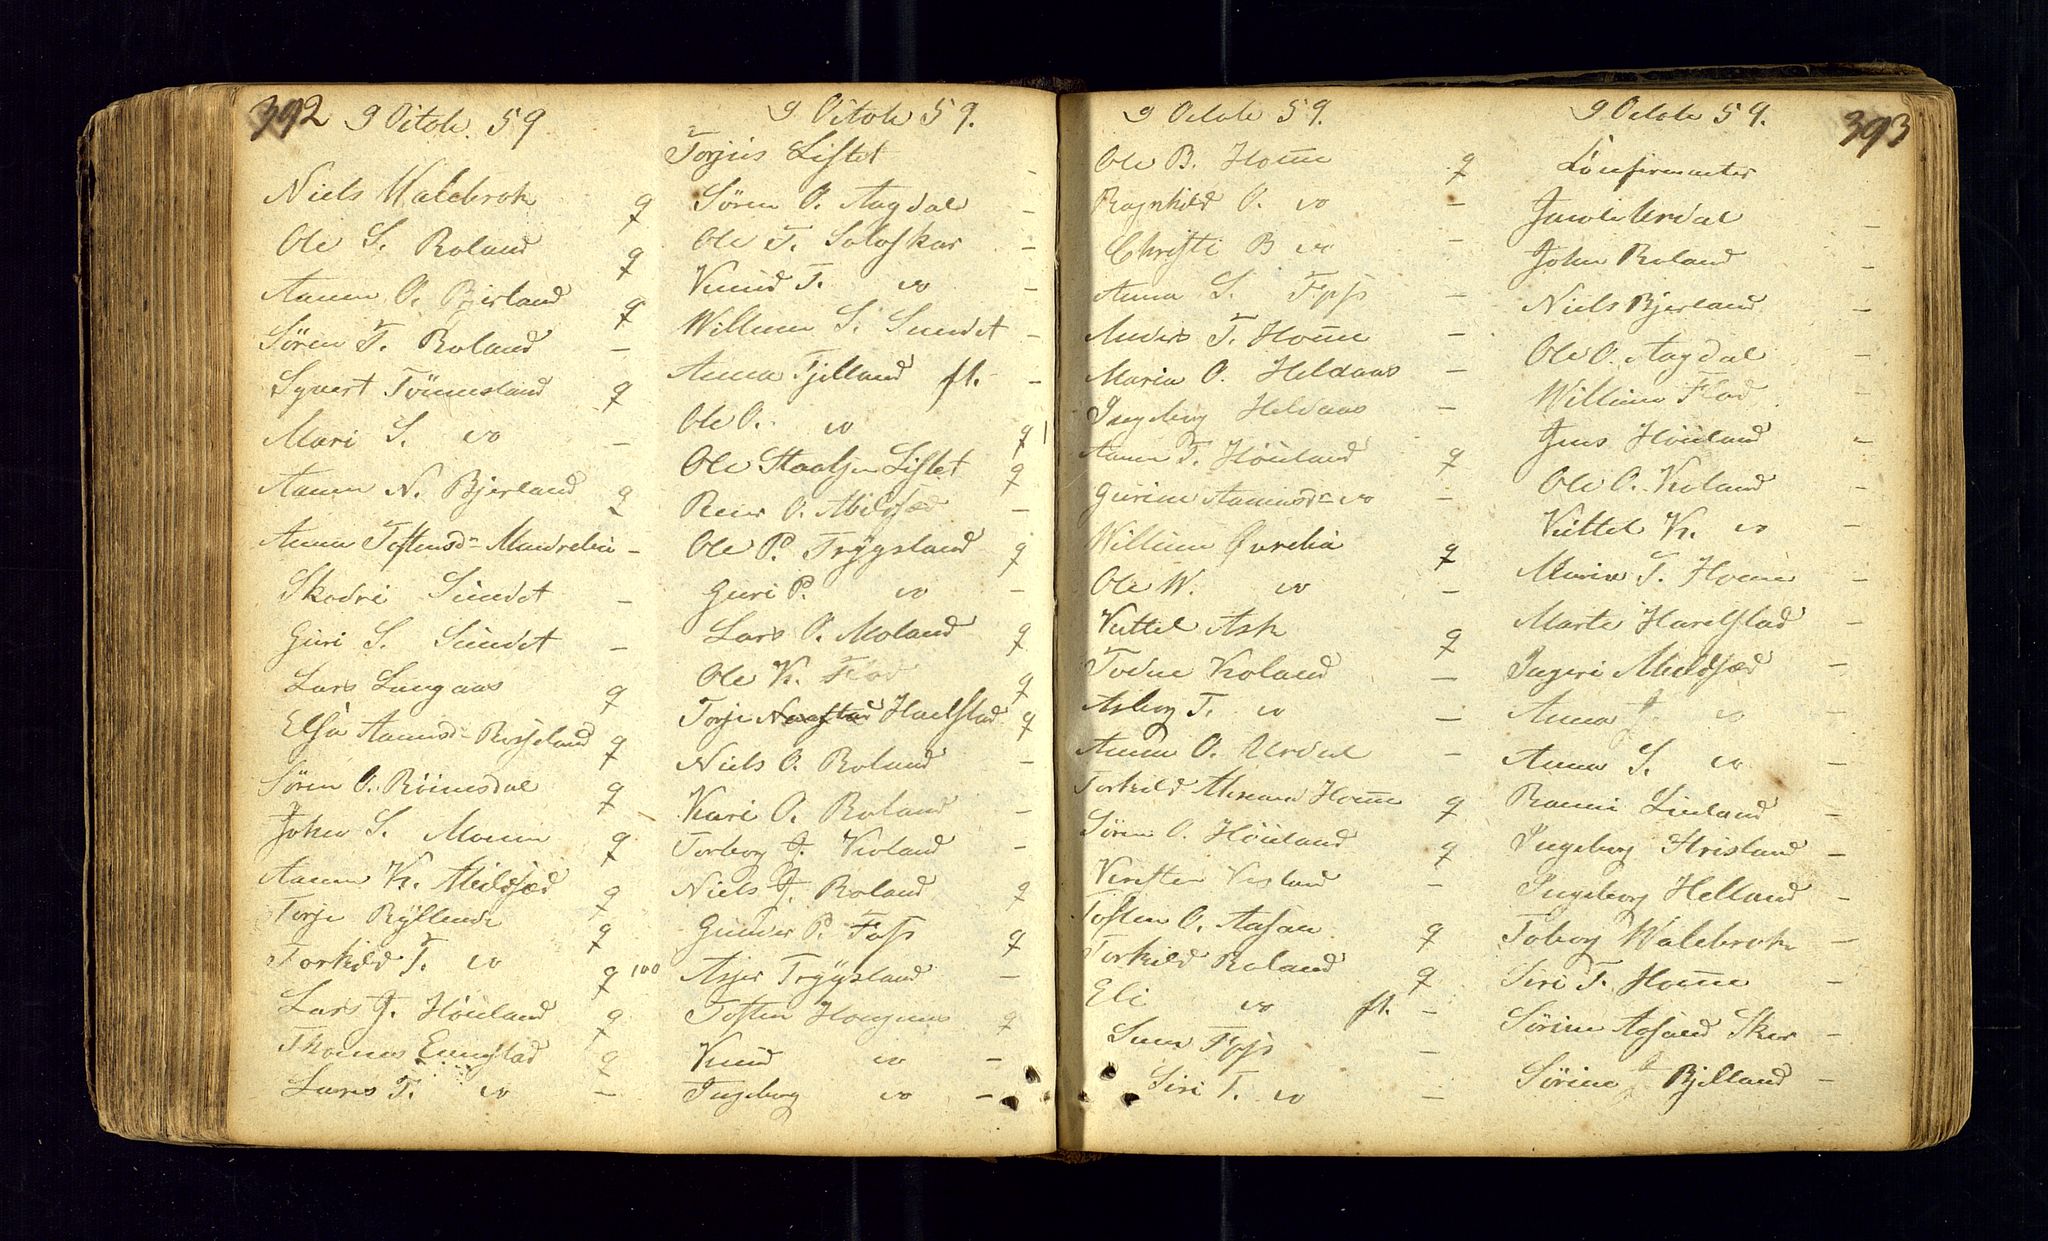 392 9 Octob. 59
Niels Walebrok g
Ole S. Roland g
Aanen O. Bjerland g
Sören T. Roland –
Syvert Tönnesland g
Mari S. do –
Aanen N. Bjerland g
Anna Tostensd- Mandrelia –
Skodvi Sundet –
Guri S. Sundet –
Lars Langaas g
Elsa Aanensd- Rosseland g
Sören O. Röinesdal g
John S. Moenn g
Aanen K. Mildsæd g
Torje Ryllende g
Torkild T. do g 100
Lars J. Höiland g
Thomas Egenstad g
Lars T. do –
9 Octob 59.
Torjus Listet –
Sören O. Aagdal –
Ole T. Soloskar –
Knud T. do –
Willum S. Sundet –
Anna Fjelland fl. –
Ole O. do g
Ole Staalsen Listet g
Reier O. Mildsæd –
Ole P. Trygsland g
Guri P. do –
Lars O. Moland g
Ole K. Flod g
Torje Harelstad g
Niels O. Roland –
Kari O. Roland –
Torborg J. Koland –
Niels J. Roland g
Gunder P. Foss g
Asjer Trygsland –
Tosten Hougenes g
Knud do –
Ingeborg do –
9 Octob 59.
Ole B. Home g
Ragnhild O. do –
Christi B do –
Anna S. Foss –
Anders T. Home –
Maria O. Heldaas –
Ingeborg Heldaas –
Aanen T. Höiland g
Gurine Aanensd- do –
Willum Øvrelia g
Ole W. do –
Kittel Ask g
Todne Koland –
Asborg T. do –
Anna O. Urdal –
Torkild Home g
Sören O. Höiland g
Kirsten –
Tosten O. Aasen g
Torkild Roland g
Eli do fl. –
Foss –
Siri T. do –
9 Octob 59. 393
Confirmanter
Jacob Urdal –
John Roland –
Niels Bjerland –
Ole O. Aagdal –
Willum Flod –
Jens Höiland –
Ole O. Koland –
Kittel K. do –
Maria T. Home –
Marte Harelstad –
Ingeri Mildsæd –
Anna J. do –
Anna S. do –
Ranni Linland –
Ingeborg Strisland –
Ingeborg Helland –
Toborg Walebrok –
Siri T. Home –
Sörine Aasland Sker –
Sörine J Bjelland –